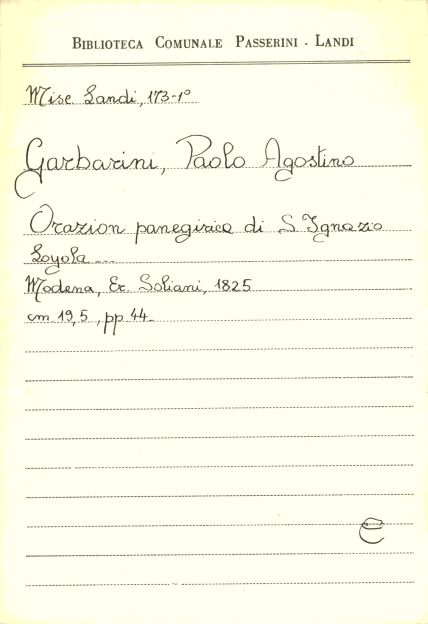 BIBLIOTECA COMUNALE PASSERINI - LANDI
Misc. Landi, 173-1°
Garbarini, Paolo Agostino
Orazion panegirica di S Ignazio
Loyola ...
Modena, Er. Soliani, 1825
cm 19,5, pp 44
C